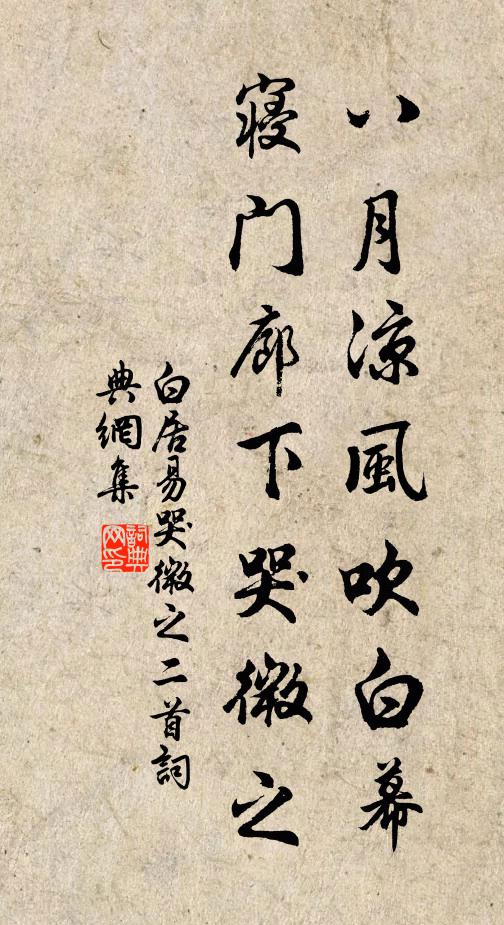 八月涼風吹白幕
寢門廊下哭微之
白居易哭微之二首詞
典網集
詞典
网印